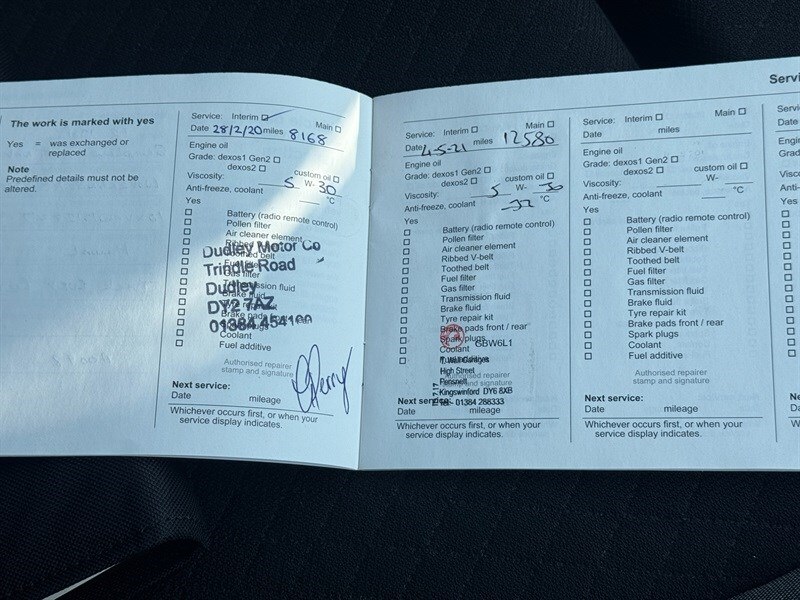 The work is marked with yes
Yes = was exchanged or
replaced
Note
Predefined details must not be
altered.
Service: Interim ☑ Main ☐
Date 28/2/20 miles 8168
Engine oil
Grade: dexos1 Gen2 ☐
dexos2 ☐ custom oil ☐
Viscosity: 5 W- 30
Anti-freeze, coolant °C
Yes
☐ Battery (radio remote control)
☐ Pollen filter
☐ Air cleaner element
☐ Ribbed V-belt
☐ Toothed belt
☐ Fuel filter
☐ Gas filter
☐ Transmission fluid
☐ Brake fluid
☐ Brake pads
☐ Spark plugs
☐ Coolant
☐ Fuel additive
Dudley Motor Co
Trindle Road
Dudley
DY2 7AZ
Authorised repairer
stamp and signature
Next service:
Date mileage
Whichever occurs first, or when your
service display indicates.
Servi
Service: Interim ☐ Main ☐
Date 4-5-21 miles 12580
Engine oil
Grade: dexos1 Gen2 ☐
dexos2 ☐ custom oil ☐
Viscosity: 5 W- 30
Anti-freeze, coolant -32 °C
Yes
☐ Battery (radio remote control)
☐ Pollen filter
☐ Air cleaner element
☐ Ribbed V-belt
☐ Toothed belt
☐ Fuel filter
☐ Gas filter
☐ Transmission fluid
☐ Brake fluid
☐ Tyre repair kit
☐ Brake pads front / rear
☐ Spark plugs
☐ Coolant
GBW6L1
High Street
Pensnett
Kingswinford DY6 8XB
Tel:- 01384 288333
Next service:
Date mileage
Whichever occurs first, or when your
service display indicates.
Service: Interim ☐ Main ☐
Date miles
Engine oil
Grade: dexos1 Gen2 ☐
dexos2 ☐ custom oil ☐
Viscosity: W-
Anti-freeze, coolant °C
Yes
☐ Battery (radio remote control)
☐ Pollen filter
☐ Air cleaner element
☐ Ribbed V-belt
☐ Toothed belt
☐ Fuel filter
☐ Gas filter
☐ Transmission fluid
☐ Brake fluid
☐ Tyre repair kit
☐ Brake pads front / rear
☐ Spark plugs
☐ Coolant
☐ Fuel additive
Authorised repairer
stamp and signature
Next service:
Date mileage
Whichever occurs first, or when your
service display indicates.